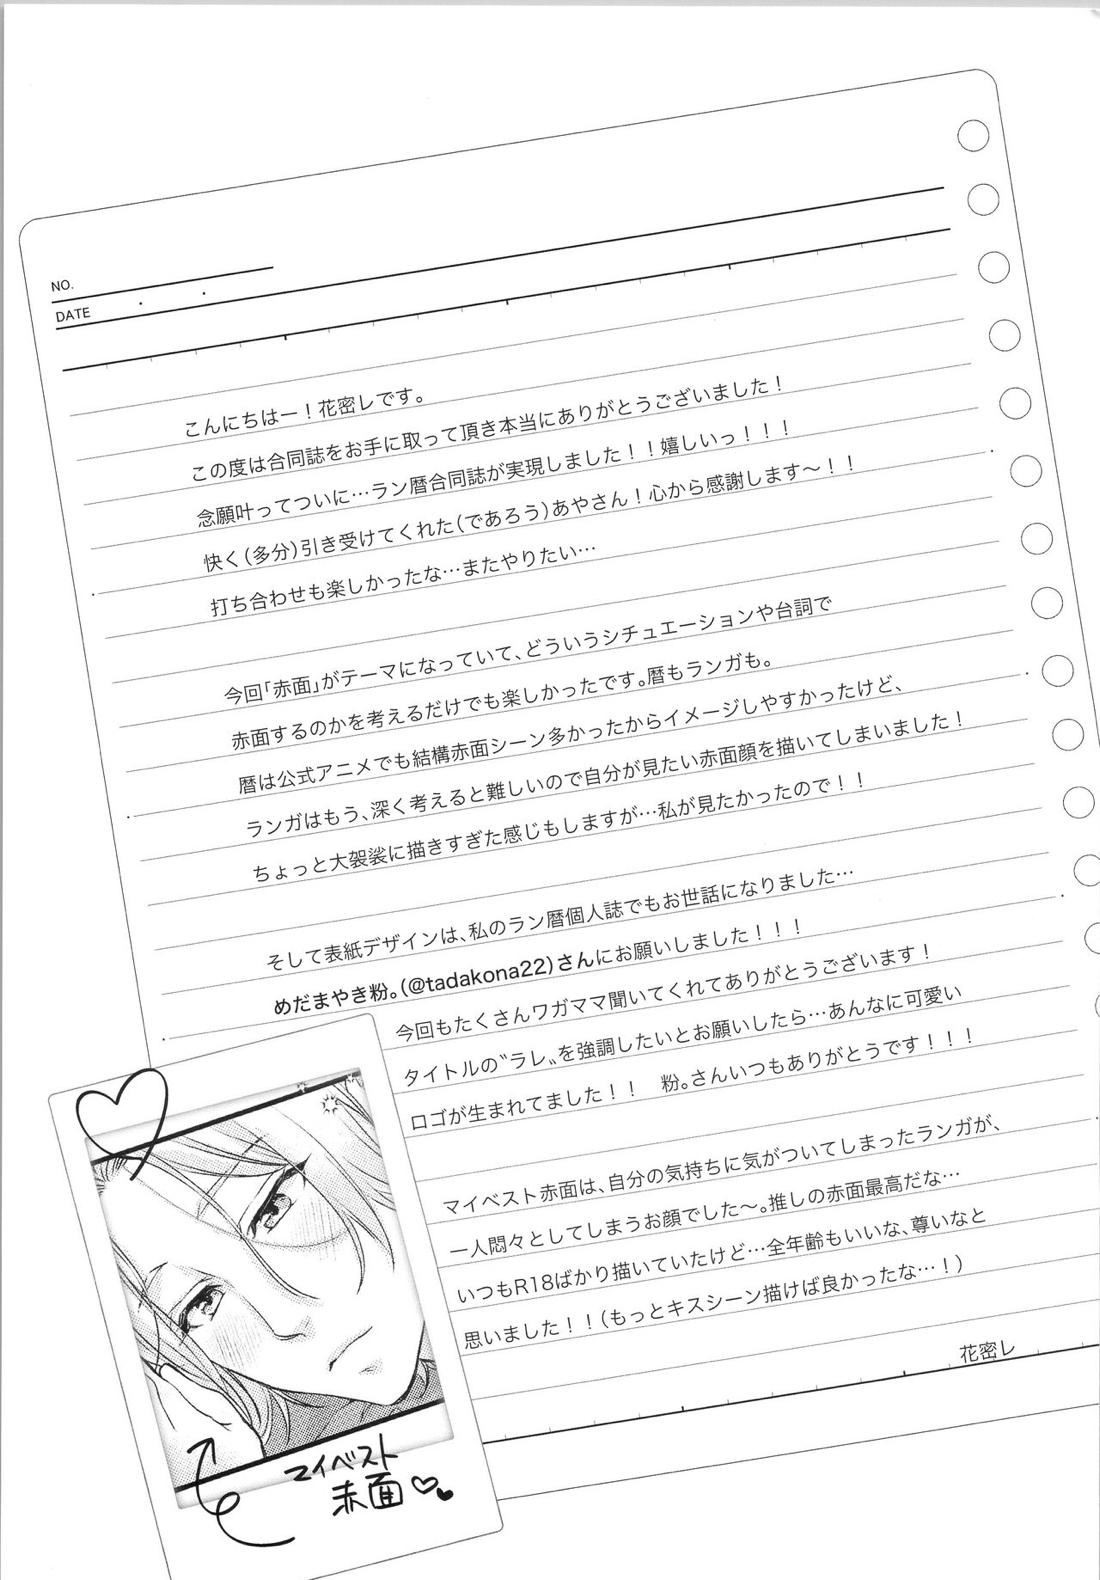 NO.
DATE
こんにちはー！花密レです。
この度は合同誌をお手に取って頂き本当にありがとうございました！
念願叶ってついに…ラン暦合同誌が実現しました！！嬉しいっ！！！
快く（多分）引き受けてくれた（であろう）あやさん！心から感謝します〜！！
打ち合わせも楽しかったな…またやりたい…
今回「赤面」がテーマになっていて、どういうシチュエーションや台詞で
赤面するのかを考えるだけでも楽しかったです。暦もランガも。
暦は公式アニメでも結構赤面シーン多かったからイメージしやすかったけど、
ランガはもう、深く考えると難しいので自分が見たい赤面顔を描いてしまいました！
ちょっと大袈裟に描きすぎた感じもしますが…私が見たかったので！！
そして表紙デザインは、私のラン暦個人誌でもお世話になりました…
めだまやき粉。（@tadakona22）さんにお願いしました！！！
今回もたくさんワガママ聞いてくれてありがとうございます！
タイトルの〝ラレ〟を強調したいとお願いしたら…あんなに可愛い
ロゴが生まれてました！！　粉。さんいつもありがとうです！！！
マイベスト赤面は、自分の気持ちに気がついてしまったランガが、
一人悶々としてしまうお顔でした〜。推しの赤面最高だな…
いつもR18ばかり描いていたけど…全年齢もいいな、尊いなと
思いました！！（もっとキスシーン描けば良かったな…！）
花密レ
マイベスト
赤面